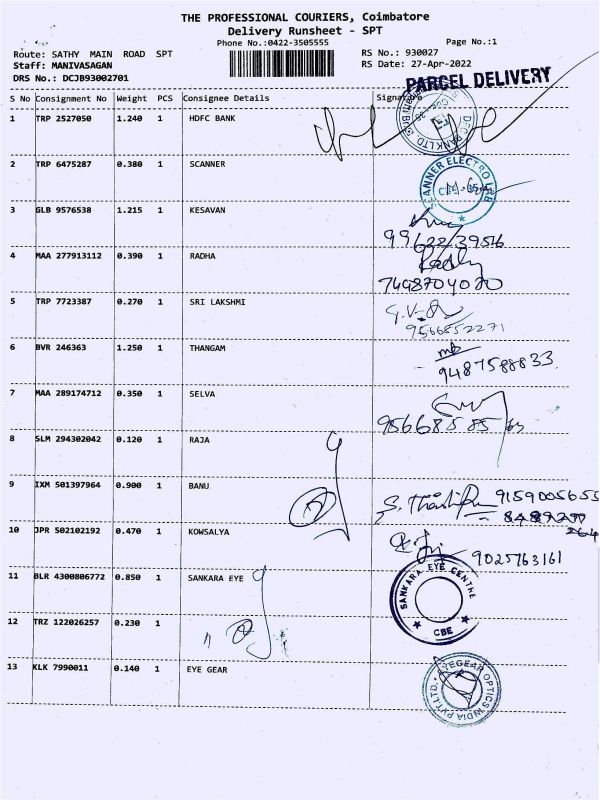 THE PROFESSIONAL COURIERS, Coimbatore
Delivery Runsheet - SPT
Phone No.:0422-3505555
Page No.:1
Route: SATHY MAIN ROAD SPT
RS No.: 930027
Staff: MANIVASAGAN
RS Date: 27-Apr-2022
DRS No.: DCJB93002701
PARCEL DELIVERY
S No Consignment No Weight PCS Consignee Details Signature
1 TRP 2527050 1.240 1 HDFC BANK
2 TRP 6475287 0.380 1 SCANNER
SCANNER ELECTRO LAB
3 GLB 9576538 1.215 1 KESAVAN
99622/3956
4 MAA 277913112 0.390 1 RADHA
7498704020
5 TRP 7723387 0.270 1 SRI LAKSHMI
9566652271
6 BVR 246363 1.250 1 THANGAM
9487588833
7 MAA 289174712 0.350 1 SELVA
8 SLM 294302042 0.120 1 RAJA
9 IXM 501397964 0.900 1 BANU
9159005655
10 JPR 502102192 0.470 1 KOWSALYA
9025763161
11 BLR 4300806772 0.850 1 SANKARA EYE
SANKARA EYE CENTRE
★ CBE ★
12 TRZ 122026257 0.230 1
13 KLK 7990011 0.140 1 EYE GEAR
EYEGEAR OPTICS INDIA PVT.LTD.